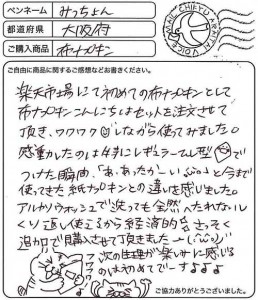 ペンネーム みっちょん
都道府県 大阪府
ご購入商品 布ナプキン
MAINICHI KYU ARATAI VOICE
ご自由に商品に関するご感想などお書きください。
楽天市場にて初めての布ナプキンとして
布ナプキンこんにちはセットを注文させて
頂き、ワクワクしながら使ってみました。
感動したのは特にレギュラーLL型で
つけた瞬間、「あ、あったかーい」と今まで
使ってきた紙ナプキンとの違いを感じました。
アルカリウォッシュで洗っても全然へたれないし
くり返し使えるから経済的。さっそく
追加で購入させて頂きました
次の生理が楽しみと感じる
のは初めてでーすよよよ
フワフワ
ご協力ありがとうございました。